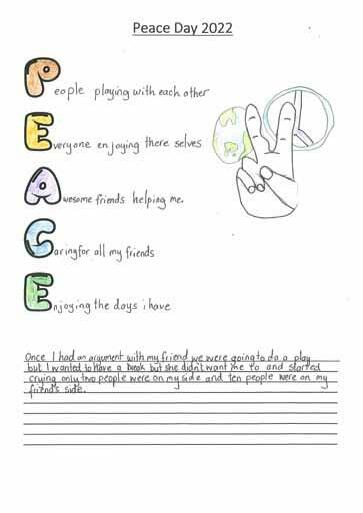 Peace Day 2022
People playing with each other
Everyone enjoying there selves
Awesome friends helping me.
Caring for all my friends
Enjoying the days i have
Once I had an argument with my friend we were going to do a play
but I wanted to have a break but she didn't want me to and started
cruing only two people were on my side and ten people were on my
friend's side.